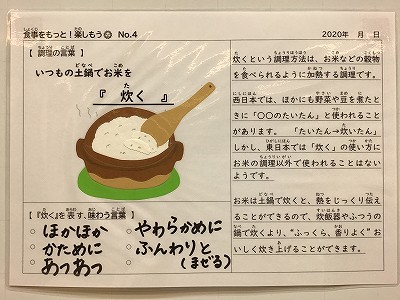 食事をもっと！楽しもう No.4
2020年　月　日
【 調理の言葉 】
いつもの土鍋でお米を
『 炊く 』
【『炊く』を表す、味わう言葉 】
○ ほかほか
○ かために
○ あつあつ
○ やわらかめに
○ ふんわりと
(まぜる)
炊くという調理方法は、お米などの穀物
を食べられるように加熱する調理です。
西日本では、ほかにも野菜や豆を煮たと
きに「○○のたいたん」と使われること
があります。「たいたん→炊いたん」
しかし、東日本では「炊く」の使い方に
お米の調理以外で使われることはない
ようです。
お米は土鍋で炊くと、熱をじっくり伝え
ることができるので、炊飯器やふつうの
鍋で炊くより、“ふっくら、香りよく”お
いしく炊き上げることができます。